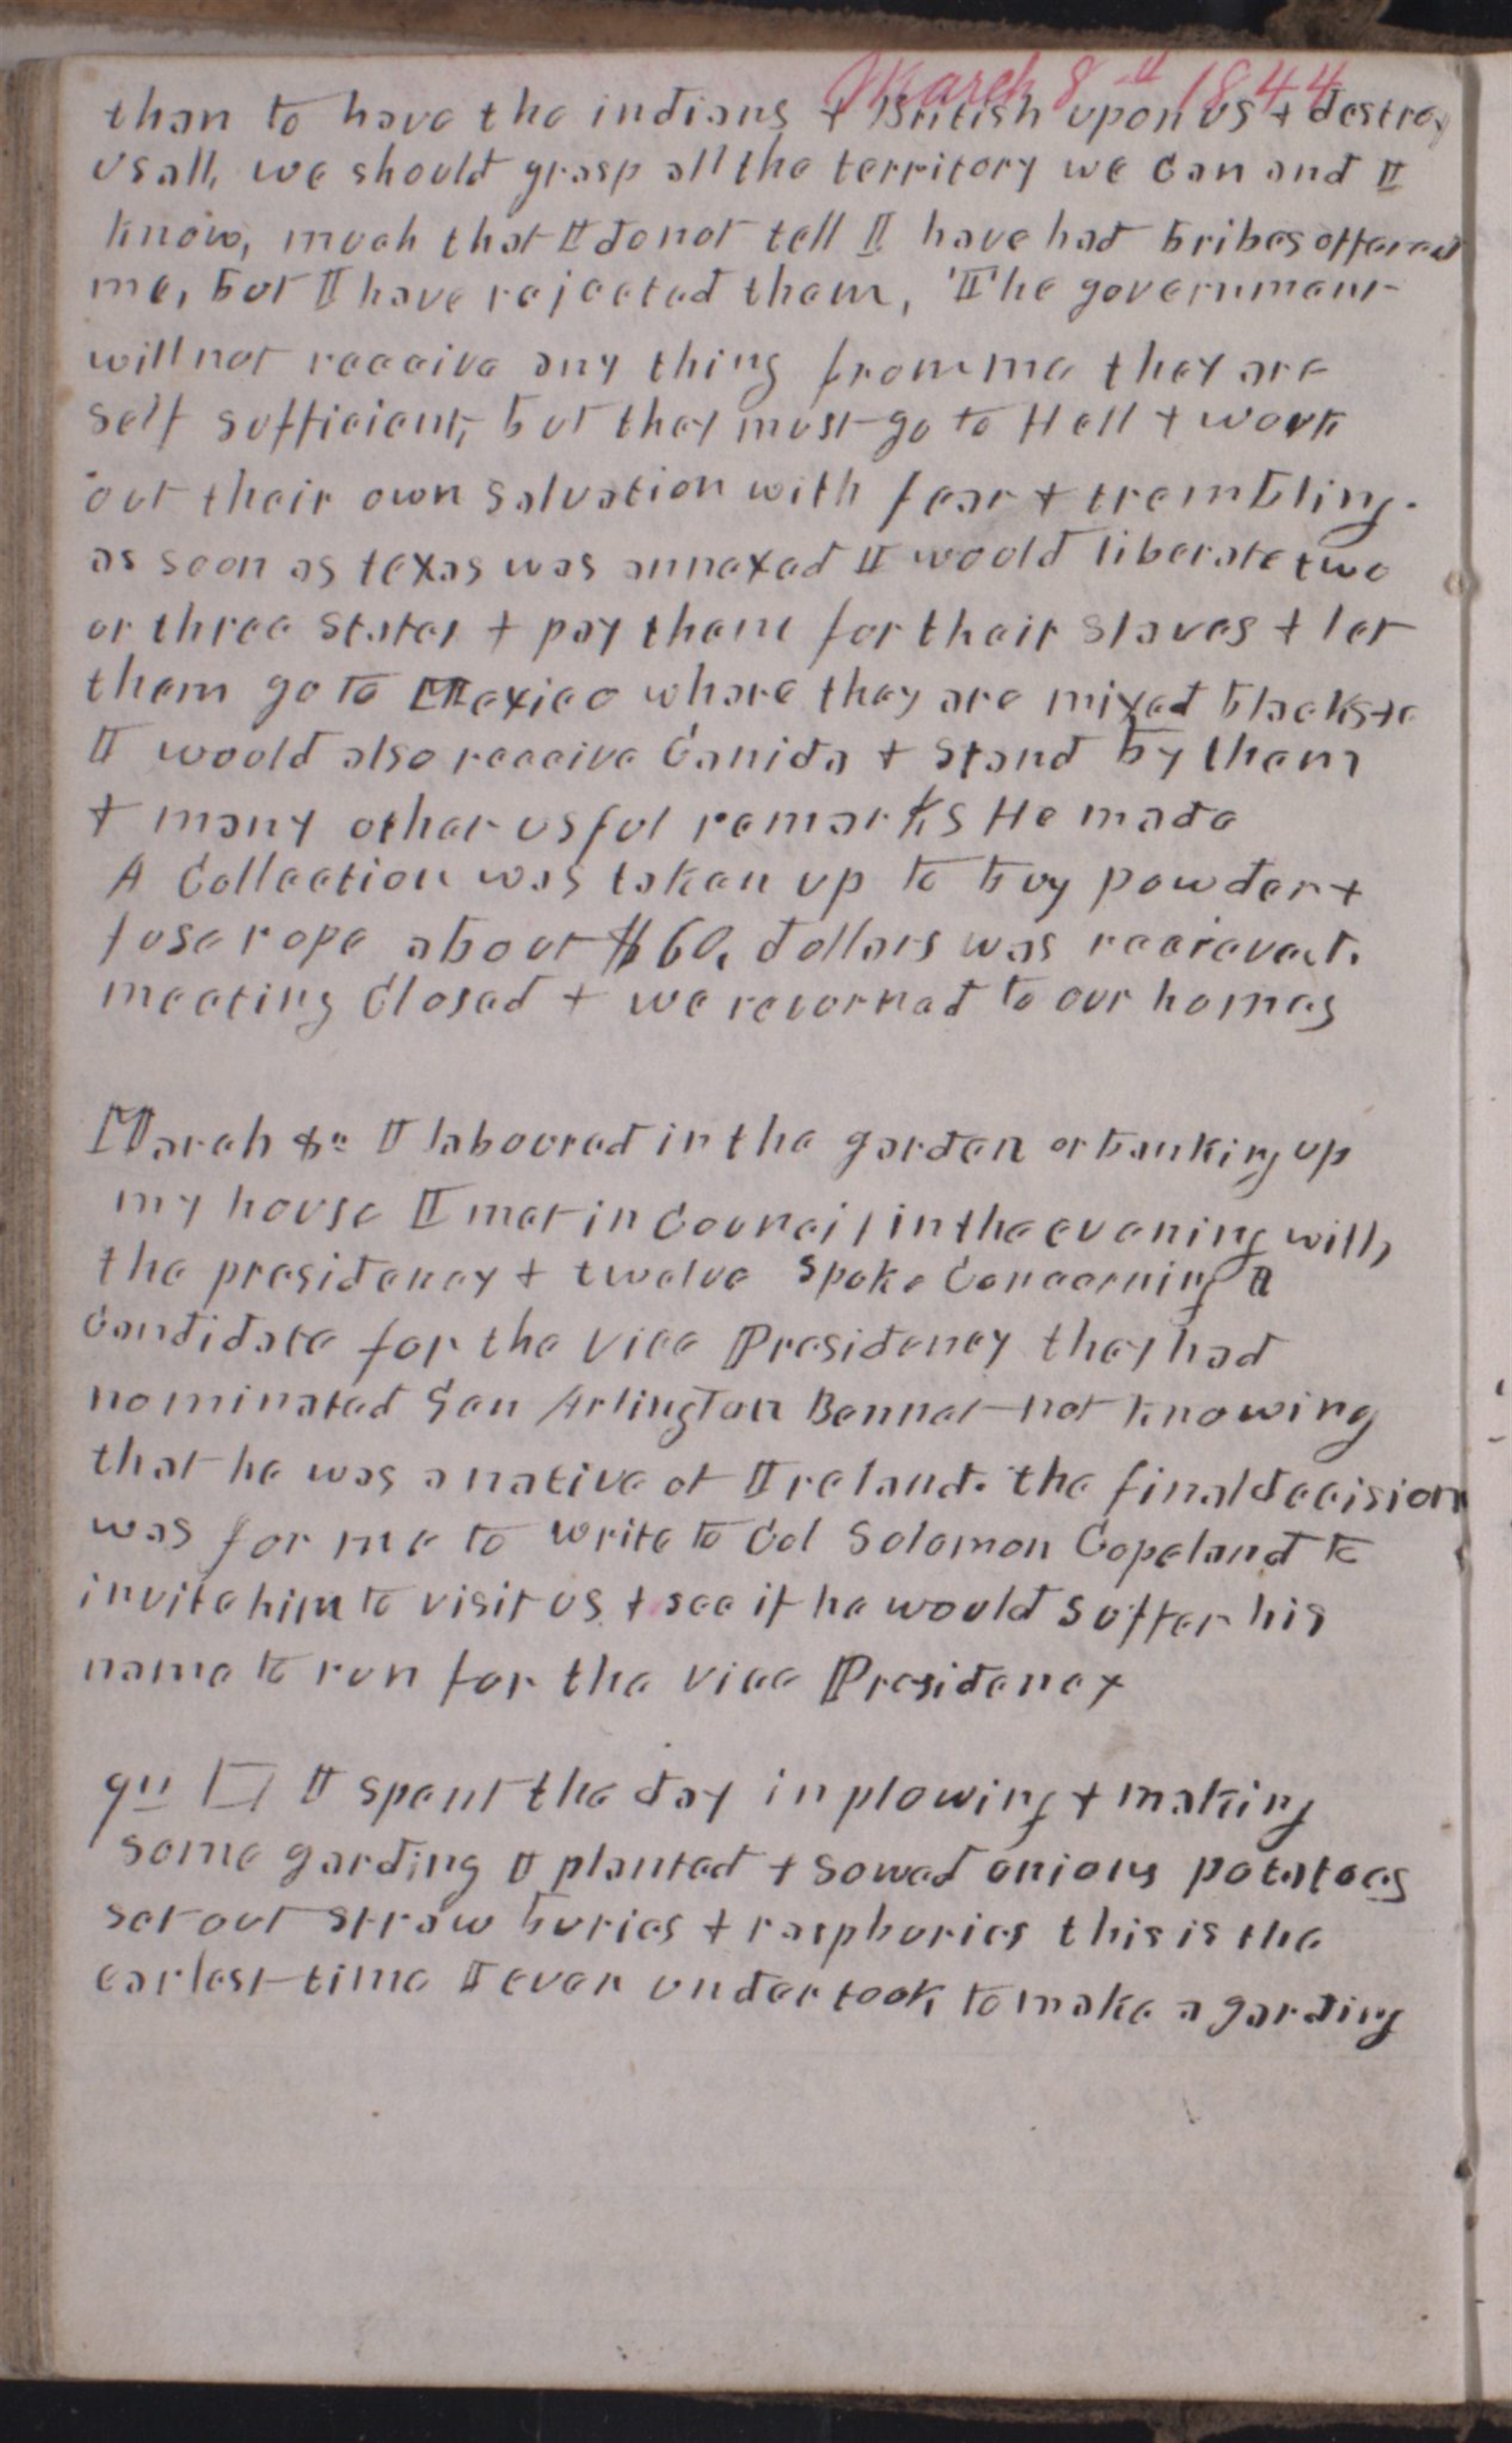 March 8th 1844
than to have the indians & British upon us & destroy
us all, we should grasp all the territory we Can and I
know, much that I do not tell I have had bribes offered
me, but I have rejected them, The government
will not receive any thing from me they are
self sufficient, but they must go to Hell & work
out their own salvation with fear & trembling.
as soon as texas was annexed I would liberate two
or three States & pay them for their Slaves & let
them go to Mexico where they are mixed blacks &c
I would also receive Canida & stand by them
& many other usful remarks He made
A Collection was taken up to buy powder &
fuse rope about $60, dollars was recieved.
meeting Closed & we returned to our homes
March 8th I laboured in the garden or banking up
my house I met in Council in the evening with
the presidency & twelve Spoke Concerning a
Candidate for the Vice Presidency they had
nominated Gen Arlington Bennet not knowing
that he was a native of Ireland. the final decision
was for me to write to Col Solomon Copeland to
invite him to visit us & see if he would suffer his
name to run for the vice Presidency
9th I spent the day in plowing & making
some garding I planted & sowed onions potatoes
set out straw buries & raspburies this is the
earlest time I ever undertook to make a garding